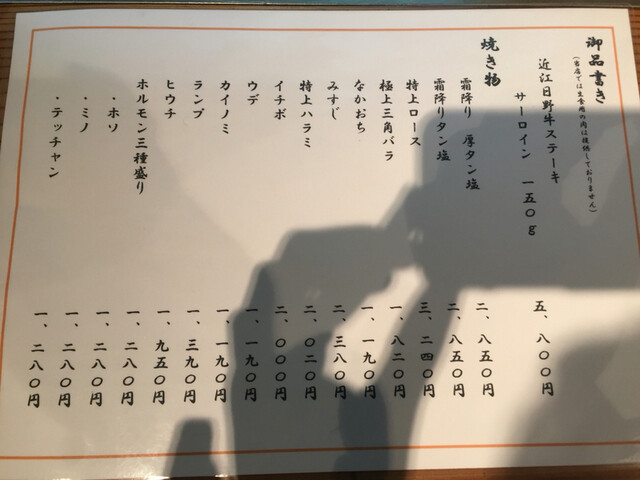 御品書き
(当店では生食用の肉は提供しておりません)
近江日野牛ステーキ
サーロイン 一五〇g 五、八〇〇円
焼き物
霜降り 厚タン塩 二、八五〇円
霜降りタン塩 二、八五〇円
特上ロース 三、二四〇円
極上三角バラ 一、八二〇円
なかおち 一、一九〇円
みすじ 二、三八〇円
特上ハラミ 二、〇二〇円
イチボ 二、〇〇〇円
ウデ 一、一九〇円
カイノミ 一、一九〇円
ランプ 一、三九〇円
ヒウチ 一、九五〇円
ホルモン三種盛り 一、二八〇円
・ホソ 一、二八〇円
・ミノ 一、二八〇円
・テッチャン 一、二八〇円